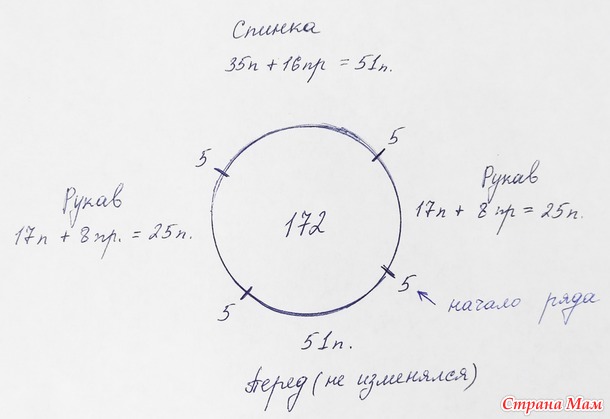 Спинка
35п + 16пр = 51п.
5
5
Рукав
17п + 8пр. = 25п.
172
Рукав
17п + 8пр = 25п.
5
5
начало ряда
51п.
Перед (не изменялся)
Страна Мам